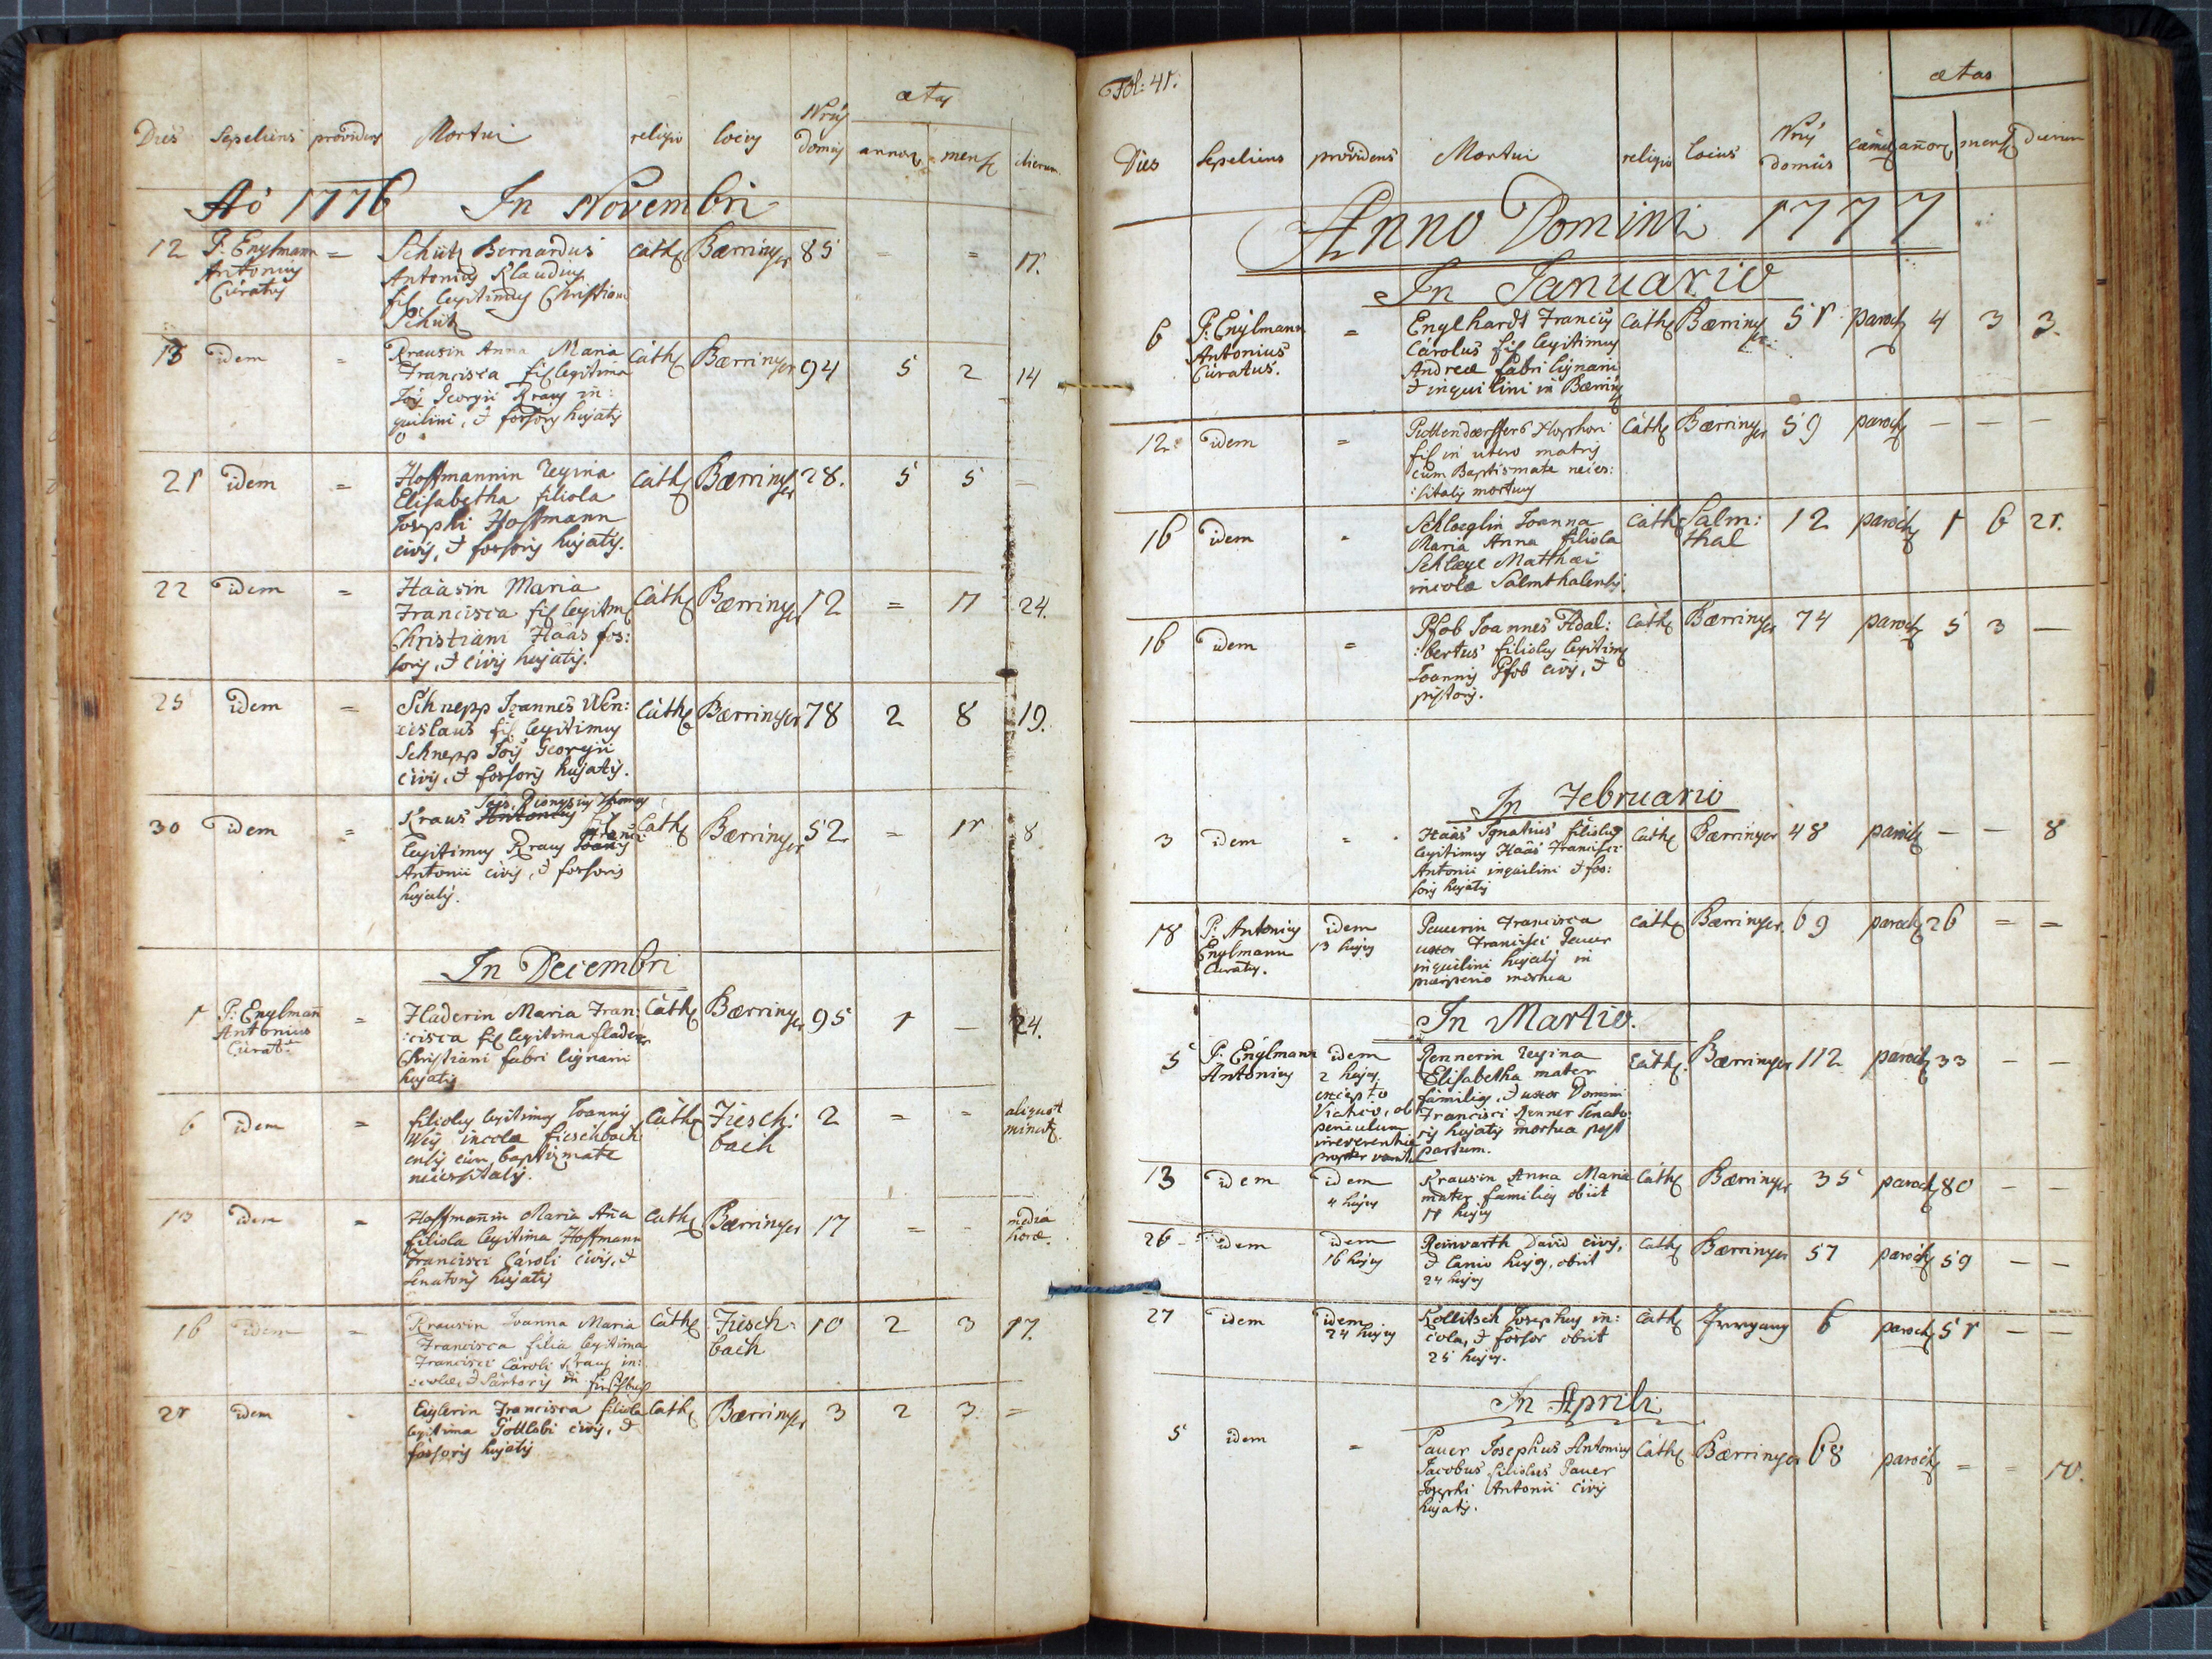 ætas
Dies Sepeliens providens Mortui religio locus Nrus domus annor mens dierum
Aō 1776 In Novembri
12 P. Englmann = Schütz Bernardus cath Bærringer 85 = = 11.
Antonius Antonius Klaudius
Curatus fil legitimus Christiani
Schütz
13 idem = Krausin Anna Maria Cath Bærringer 94 5 2 14
Francisca fil legitima
Jois Georgii Kraus in:
quilini, & fossoris hujatis
21 idem = Hoffmannin Regina cath Bærringer 28. 5 5 =
Elisabetha filiola
Josephi Hoffmann
civis, & fossoris hujatis.
22 idem = Haäsin Maria Cath Bærringer 12 = 11 24.
Francisca fil legitim
Christiani Haäs fos:
soris, & civis hujatis.
25 idem = Schnepp Joannes Wen: Cath Bærringer 78 2 8 19.
ceslaus fil legitimus
Schnepp Jois Georgii
civis, & fossoris hujatis.
Jois Dionysius Thomas
30 idem = Kraus Antonius fil Cath Bærringer 52 = 11 8
legitimus Kraus
Antonii civis, & fossoris
hujatis.
In Decembri
1 P. Englmann = Haderin Maria Fran: Cath Bærringer 95 1 — 24.
Antonius :cisca fil legitima Hader
Curat: Christiani fabri lignarii
hujatis
6 idem = filiolus legitimus Joannis Cath Fiesch: 2 = = aliquot
Weis incolæ Fieschbach bach minut
ensis cum baptismate
necessitatis.
13 idem = Hoffmannin Maria Aña Cath Bærringer 17 = - media
filiola legitima Hoffmann horæ.
Francisci Caroli civis, &
senatoris hujatis
16 idem = Krausin Joanna Maria Cath Fiesch: 10 2 3 17.
Francisca filia legitima bach
Francisci Caroli Kraus in:
:colæ, & Sartoris in Fieschbach
21 idem - Eiglerin Francisca filiola Cath Bærringer 3 2 3 =
legitima Gottlobi civis, &
fossoris hujatis
Fol: 41.
ætas
Dies Sepeliens providens Mortui religio locus Nrus domus cæmet añor mens dierum
Anno Domini 1777
In Januario
6 P. Englmann = Englhardt Francis Cath Bærringer 51 paroch 4 3 3.
Antonius Carolus fil legitimus
Curatus. Andreæ fabri lignarii
& inquilini in Bærring
12. idem = fil in utero matris Cath Bærringer 59 paroch — — —
cum Baptismate neces:
:sitatis mortuus
16 idem - Schlœglin Joanna Cath Salm: 12 paroch 1 6 21.
Maria Anna filiola thal
Schlægl Matthæi
incolæ Salmthalensis.
16 idem = Pfob Joannes Adal: Cath Bærringer 74 paroch 5 3 —
:bertus filiolus legitimus
Joannis Pfob civis, &
pistoris.
In Februario
3 idem - Haäs Ignatius filiolus Cath Bærringer 48 paroch — — 8
legitimus Haäs Francisci
Antonii inquilini & fos:
soris hujatis
18 P. Antonius idem Peuerin Francisca Cath Bærringer. 69 paroch 26 = =
Englmann 13 hujus uxor Francisci Peuer
Curatus. inquilini hujatis in
puerperio mortua
In Martio.
5 P. Englmann idem Rennerin Regina Cath. Bærringer 112 paroch 33 — —
Antonius 2 hujus Elisabetha mater
excepto familias, & uxor Domini
Viatico, ob Francisci Renner Senato:
periculum ris hujatis mortua post
irreverentiæ partum.
propter vomit
13 idem idem Krausin Anna Maria Cath Bærringer 35 paroch 80 — —
4 hujus mater familias obiit
11 hujus
26 idem idem Reinwarth David civis, Cath Bærringer 57 paroch 59 — —
16 hujus & lanio hujas, obiit
24 hujus
27 idem idem Kollitsch Josephus in: Cath Irrgang 6 paroch 51 — —
24 hujus cola, & fossor obiit
25 hujus.
In Aprili
5 idem = Pauer Josephus Antonius Cath Bærringer 68 paroch = = 10.
Jacobus filiolus Pauer
Josephi Antonii civis
hujatis.